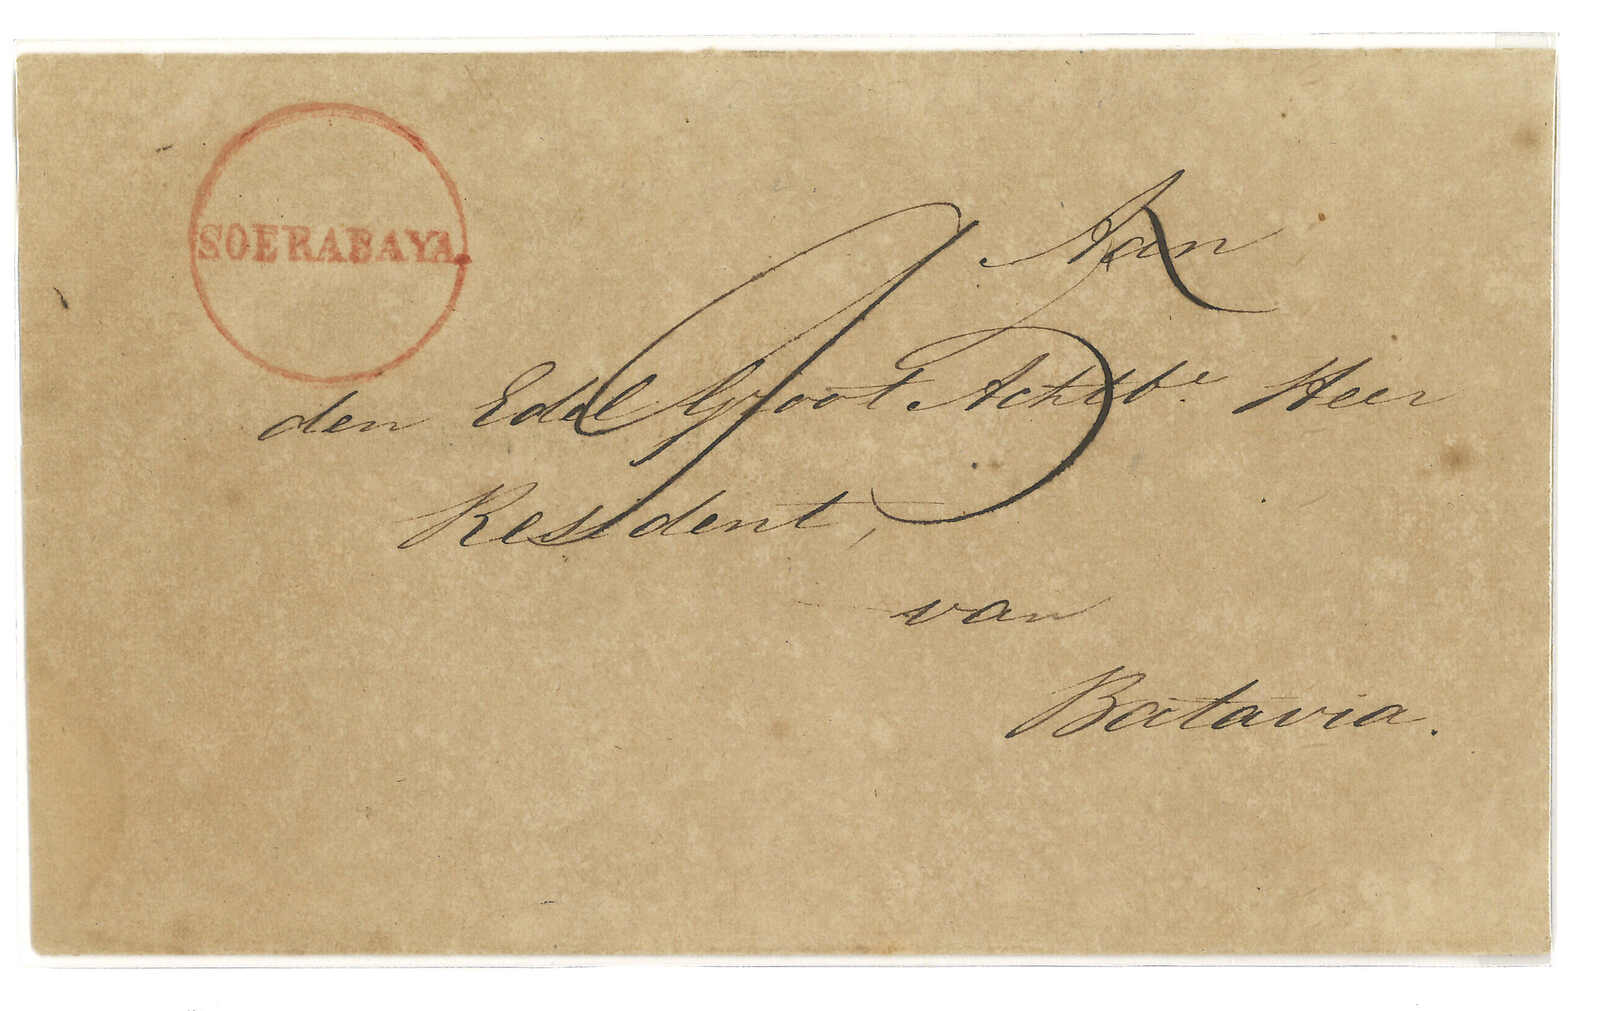 SOERABAYA.
Aan
den Edel Groot Achtb.e Heer
Resident,
van
Batavia.